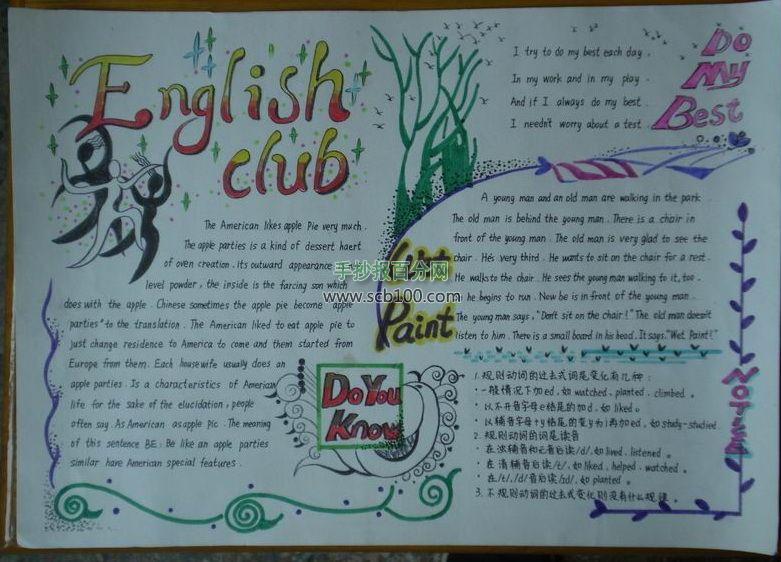 English
club
The American likes apple Pie very much.
The apple parties is a kind of dessert haert
of oven creation. Its outward appearance
level powder, the inside is the farcing son which
does with the apple. Chinese sometimes the apple pie become apple
parties" to the translation. The American liked to eat apple pie to
just change residence to America to come and them started from
Europe from them. Each housewife usually does an
apple parties. Is a characteristics of American
life for the sake of the elucidation, people
often say As American as apple pic. The meaning
of this sentence BE: Be like an apple parties
similar have American special features.
手抄报百分网
www.scb100.com
Do You
Know
Do
My
Best
I try to do my best each day.
In my work and in my play.
And if I always do my best.
I needn't worry about a test.
Wet
Paint
A young man and an old man are walking in the park.
The old man is behind the young man. There is a chair in
front of the young man. The old man is very glad to see the
chair. He's very third. He wants to sit on the chair for a rest.
He walks to the chair. He sees the young man walking to it, too.
he begins to run. Now be is in front of the young man.
The young man says, "Don't sit on the chair!" The old man doesn't
listen to him. There is a small board in his head. It says, "Wet Paint!"
1.规则动词的过去式词尾变化有几种:
·一般情况下加ed,如watched、planted、climbed。
·以不开音字母e结尾的加d,如liked。
·以辅音字母+y结尾的变y为i再加ed,如study-studied
2.规则动词的词尾读音
·在浊辅音和元音后读/d/,如lived、listened。
·在清辅音后读/t/,如liked、helped、watched。
·在/t/,/d/音后读/id/,如planted。
3.不规则动词的过去式变化则没有什么规律。